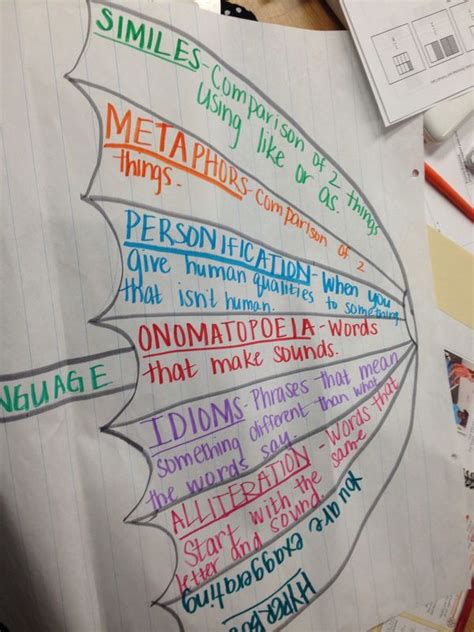 SIMILES-Comparison of 2 things
using like or as.
METAPHORS-Comparison of 2
things.
PERSONIFICATION-When you
give human qualities to something
that isn't human.
ONOMATOPOEIA-Words
that make sounds.
NGUAGE
IDIOMS-Phrases that mean
something different than what
the words say.
ALLITERATION-Words that
Start with the same
letter and sound.
HYPERBO
You are exaggerating